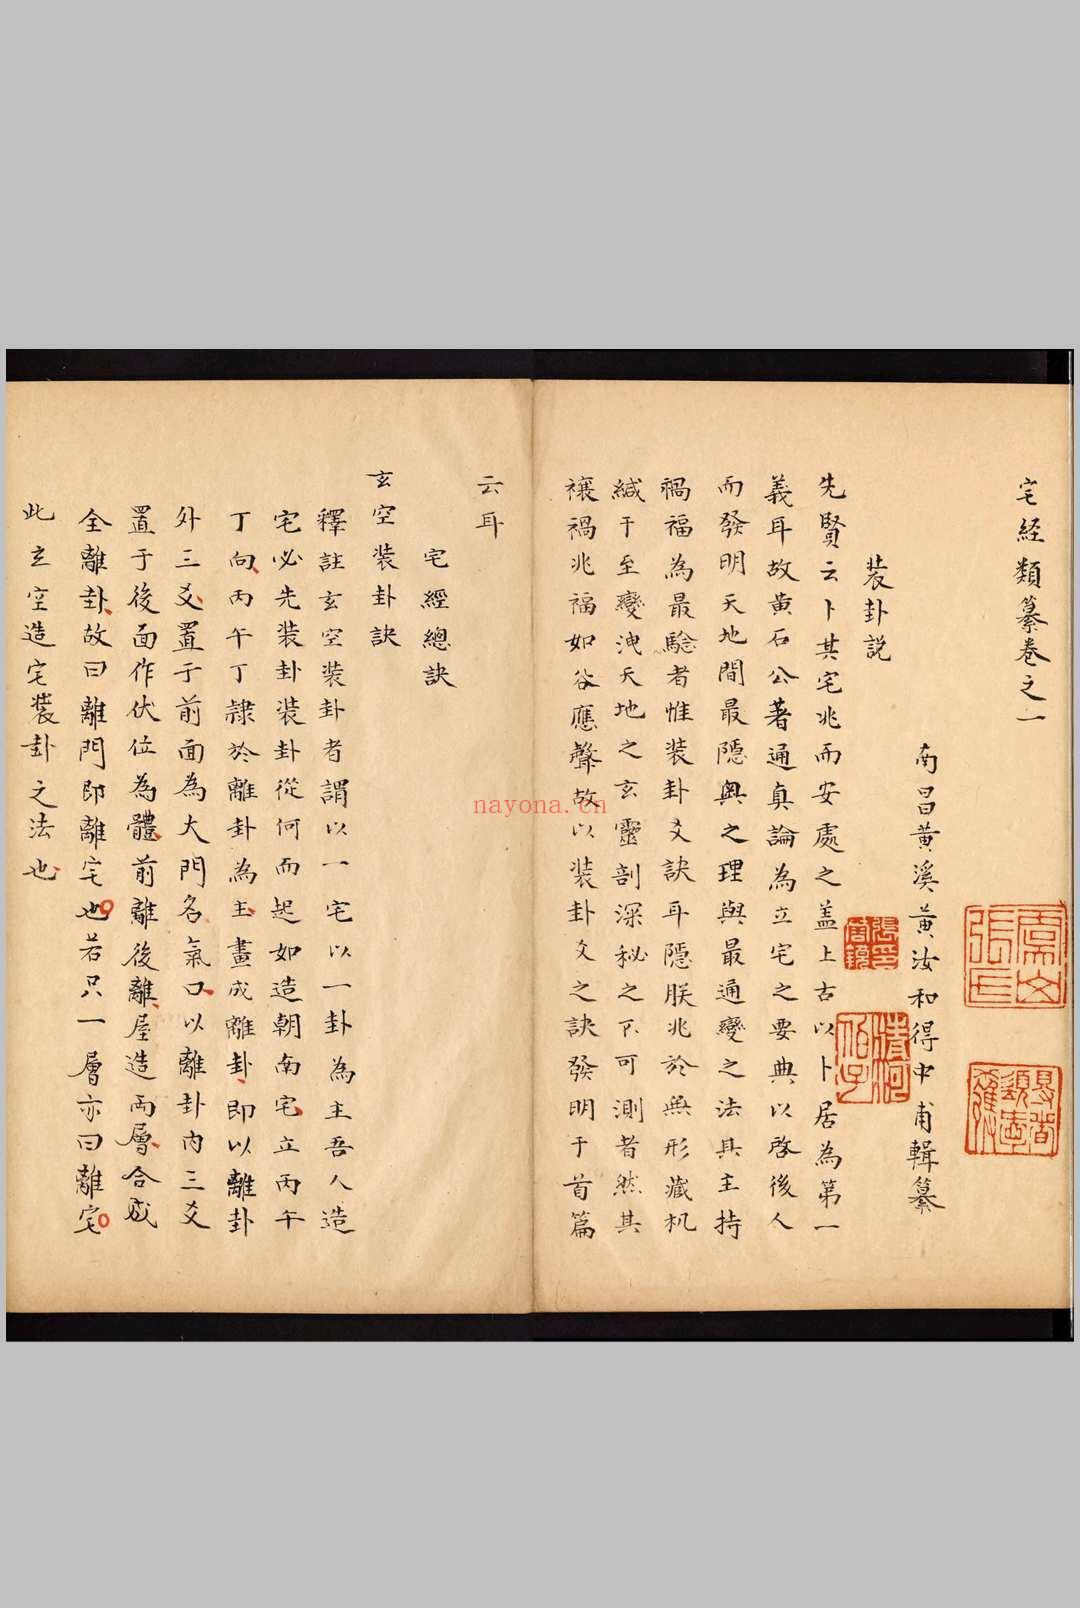 宅經類纂卷之一
南昌黃溪黃汝和得中甫輯纂
裝卦說
先賢云卜其宅兆而安處之盖上古以卜居為第一
義耳故黃石公著通真論為立宅之要典以啓後人
而發明天地間最隱輿之理與最通變之法具主持
禍福為最騐者惟装卦爻訣耳隱朕兆於無形藏机
緘于至變洩天地之玄靈剖深秘之不可測者然其
禳禍兆福如谷應聲故以装卦爻之訣發明于首篇
云耳
宅經總訣
玄空裝卦訣
釋註玄空装卦者謂以一宅以一卦為主吾人造
宅必先装卦装卦從何而起如造朝南宅立丙午
丁向丙午丁隷於離卦為主畫成離卦即以離卦
外三爻置于前面為大門名氣口以離卦内三爻
置于後面作伏位為體前離後離屋造両層合成
全離卦故曰離門即離宅也若只一層亦曰離宅
此玄空造宅裝卦之法也
nayona.cn